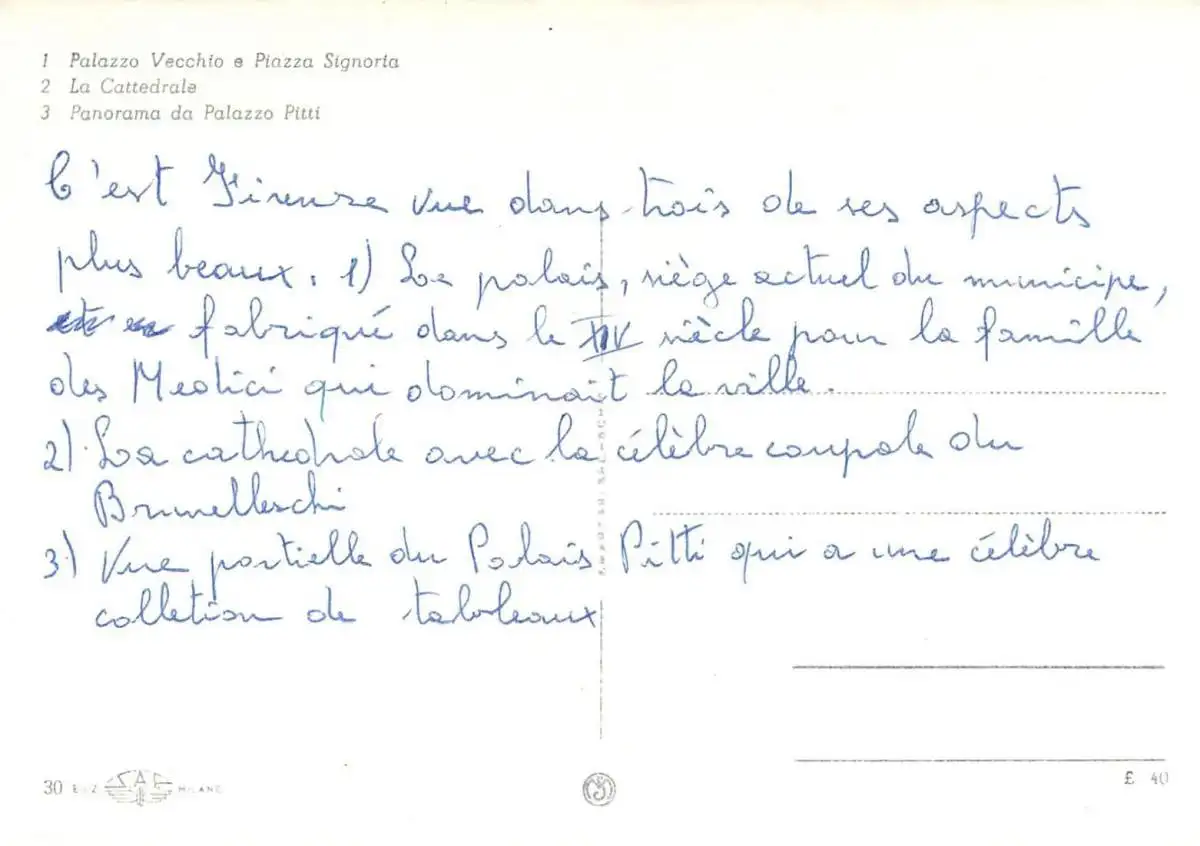 1 Palazzo Vecchio e Piazza Signoria
2 La Cattedrale
3 Panorama da Palazzo Pitti
C'est Firenze vue dans trois de ses aspects
plus beaux. 1) Le palais, siège actuel du municipe,
fabriqué dans le XIV siècle pour la famille
des Medici qui dominait la ville.
2) La cathedrale avec la célèbre coupole du
Brunelleschi
3) Vue partielle du Palais Pitti qui a une célèbre
colletion de tableaux
30 SAF MILANO
£ 40